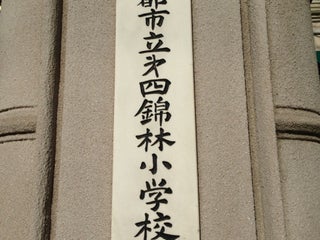 都市立第四錦林小学校